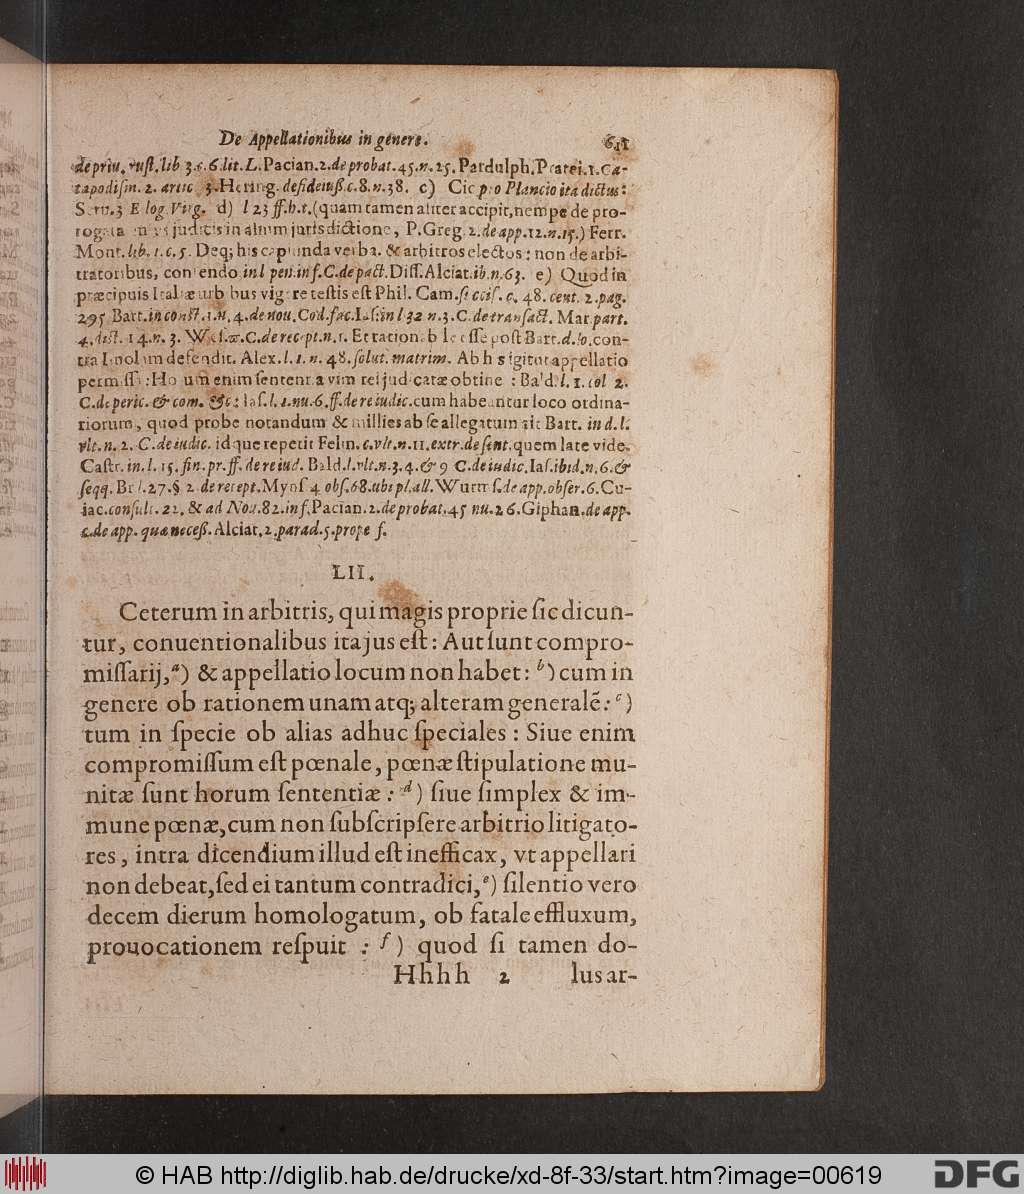 De Appellationibus in genere. 611
de priu. rust. lib 3.c.6.lit.L.Pacian.2.de probat.45.n.25.Pardulph.Pratei.1.Ca-
tapodism.2. artic 3.Hering. de fideiuß.c.8.n.38. c) Cic pro Plancio ita dictus:
Serv.3 Eclog.Virg. d) l 23 ff.h.t.(quam tamen aliter accipit,nempe de pro-
rogata judicis in alium jurisdictione, P.Greg.2.de app.12.n.15.) Ferr.
Mont.lib.1.c.5. Deq; his capiunda verba. & arbitros electos: non de arbi-
tratoribus, contendo in l pen.inf.C.de pact.Diff.Alciat.ib.n.63. e) Quod in
præcipuis Italiæ urbibus vigere testis est Phil. Cam. 48. cent. 2.pag.
295 Bart.in const.1.n.4.de nou.Cod.fac.Ias.in l 32 n.3.C.de transact. Mar.part.
4.dist.14.n.3. C.de recept.n.1. Et rationabile esse post Bart.d.lo.con-
tra Imolam defendit. Alex.l.1.n.48.solut.matrim. Ab his igitur appellatio
permissa: Horum enim sententia vim rei judicatæ obtinet: Bald.l.1.col 2.
C.de peric.& com. &c: Ias.l.1.nu.6.ff.de re iudic.cum habeantur loco ordina-
riorum, quod probe notandum & millies ab se allegatum ait Bart. in d.l.
vlt.n.2. C.de iudic. idque repetit Felin.c.vlt.n.11.extr.de sent.quem late vide.
Castr.in.l.15.fin.pr.ff.de re iud. Bald.l.vlt.n.3.4.& 9 C.de iudic.Ias.ibid.n.6.&
seqq. l.27.§ 2.de recept.Myns 4 obs.68.ubi pl.all.Wurm s.de app.obser.6.Cu-
iac.consult.22, & ad Nou.82.inf.Pacian.2.de probat.45 nu.26.Giphan.de app.
c.de app. quæ neceß.Alciat.2.parad.5.prope f.
LII.
Ceterum in arbitris, qui magis proprie sic dicun-
tur, conuentionalibus ita jus est: Aut sunt compro-
missarij,ᵃ) & appellatio locum non habet: ᵇ) cum in
genere ob rationem unam atq; alteram generalẽ: ᶜ)
tum in specie ob alias adhuc speciales: Siue enim
compromissum est pœnale, pœnæ stipulatione mu-
nitæ sunt horum sententiæ: ᵈ) siue simplex & im-
mune pœnæ, cum non subscripsere arbitrio litigato-
res, intra dicendium illud est inefficax, vt appellari
non debeat, sed ei tantum contradici,ᵉ) silentio vero
decem dierum homologatum, ob fatale effluxum,
prouocationem respuit: ᶠ) quod si tamen do-
Hhhh 2 lus ar-
© HAB http://diglib.hab.de/drucke/xd-8f-33/start.htm?image=00619
DFG